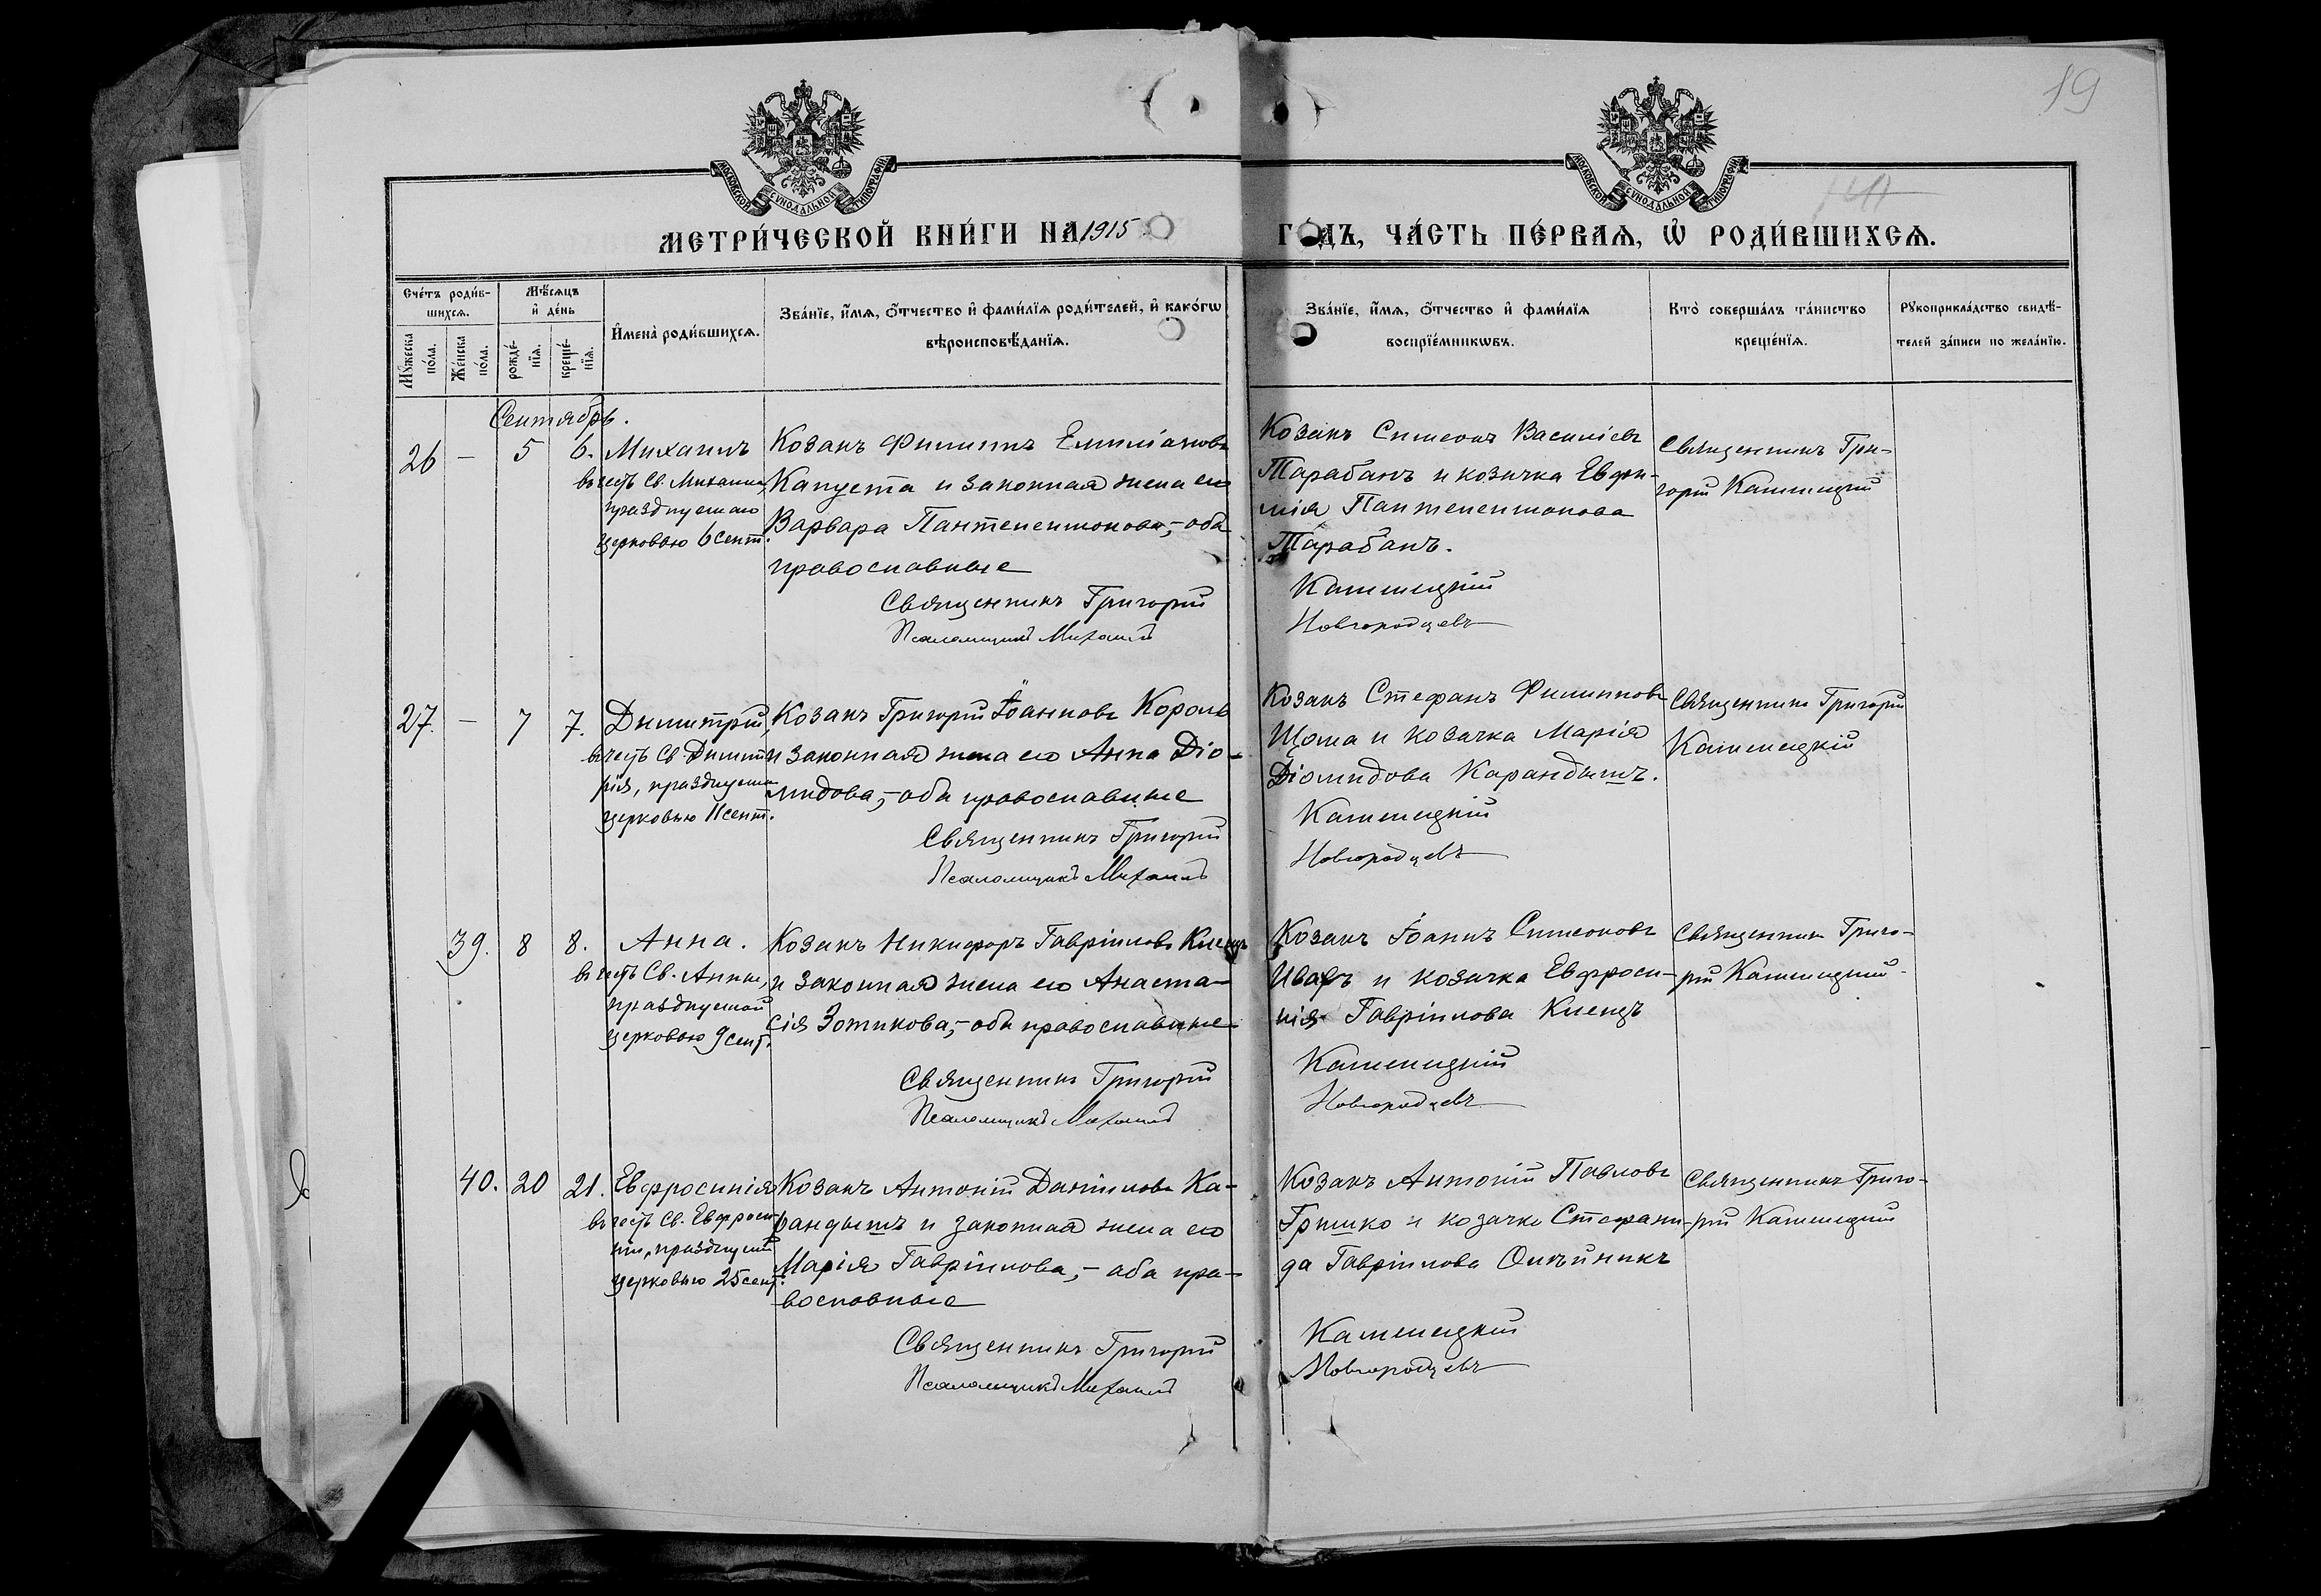 19
МОСКОВСКОЙ СУНОДАЛЬНОЙ ТИПОГРАФІИ
МОСКОВСКОЙ СУНОДАЛЬНОЙ ТИПОГРАФІИ
МЕТРИ́ЧЕСКОЙ КНИ́ГИ НА 1915 ГО́ДЪ, ЧА́СТЬ ПЕ́РВАѦ, Ѡ҆ РОДИ́ВШИХСѦ.
Сче́тъ роди́в-
шихсѧ.
Мꙋ́жеска по́ла.
Же́нска по́ла.
Мѣ́сѧцъ
и҆ де́нь
рожде́-
нїѧ.
креще́-
нїѧ.
И҆мена̀ роди́вшихсѧ.
Зва́нїе, и҆́мѧ, ѻ҆́тчество и҆ фами́лїѧ роди́телей, и҆ како́гѡ
вѣроисповѣ́данїѧ.
Зва́нїе, и҆́мѧ, ѻ҆́тчество и҆ фами́лїѧ
воспрїе́мникѡвъ.
Кто̀ соверша́лъ та́инство
креще́нїѧ.
Рꙋкоприкла́дство свидѣ́-
телей за́писи по жела́нїю.
Сентябрь.
26 – 5 6. Михаилъ
въ честь Св. Михаила,
празднуемаго
церковью 6 сент.
Козакъ Филиппъ Емиліановъ
Капуста и законная жена его
Варвара Пантелеимонова,- оба
православные
Священникъ Григорій
Псаломщикъ Михаилъ
Козакъ Симеонъ Василіевъ
Тарабанъ и козачка Евфи-
мія Пантелеимонова
Тарабанъ.
Каменецкій
Новгородцевъ
Священникъ Гри-
горій Каменецкій
27. – 7 7. Димитрій,
въ честь Св. Димит-
рія, празднуема
церковью 11 сент.
Козакъ Григорій Іоанновъ Король
и законная жена его Анна Діо-
мидова,- оба православные
Священникъ Григорій
Псаломщикъ Михаилъ
Козакъ Стефанъ Филипповъ
Щома и козачка Марія
Діомидова Карандышъ.
Каменецкій
Новгородцевъ
Священникъ Григорій
Каменецкій
39. 8 8. Анна.
въ честь Св. Анны,
празднуемой
церковью 9 сент.
Козакъ Никифоръ Гавріиловъ Клецъ
и законная жена его Анаста-
сія Зотикова,- оба православные
Священникъ Григорій
Псаломщикъ Михаилъ
Козакъ Іоаннъ Симеоновъ
и козачка Евфроси-
нія Гавріилова Клецъ
Каменецкій
Новгородцевъ
Священникъ Григо-
рій Каменецкій
40. 20 21. Евфросинія
въ честь Св. Евфроси-
ніи, празднуемой
церковью 25 сент.
Козакъ Антоній Даніиловъ Ка-
рандышъ и законная жена его
Марія Гавріилова,- оба пра-
вославные
Священникъ Григорій
Псаломщикъ Михаилъ
Козакъ Антоній Павловъ
Гришко и козачка Стефани-
да Гавріилова Олѣйникъ
Каменецкій
Новгородцевъ
Священникъ Григо-
рій Каменецкій